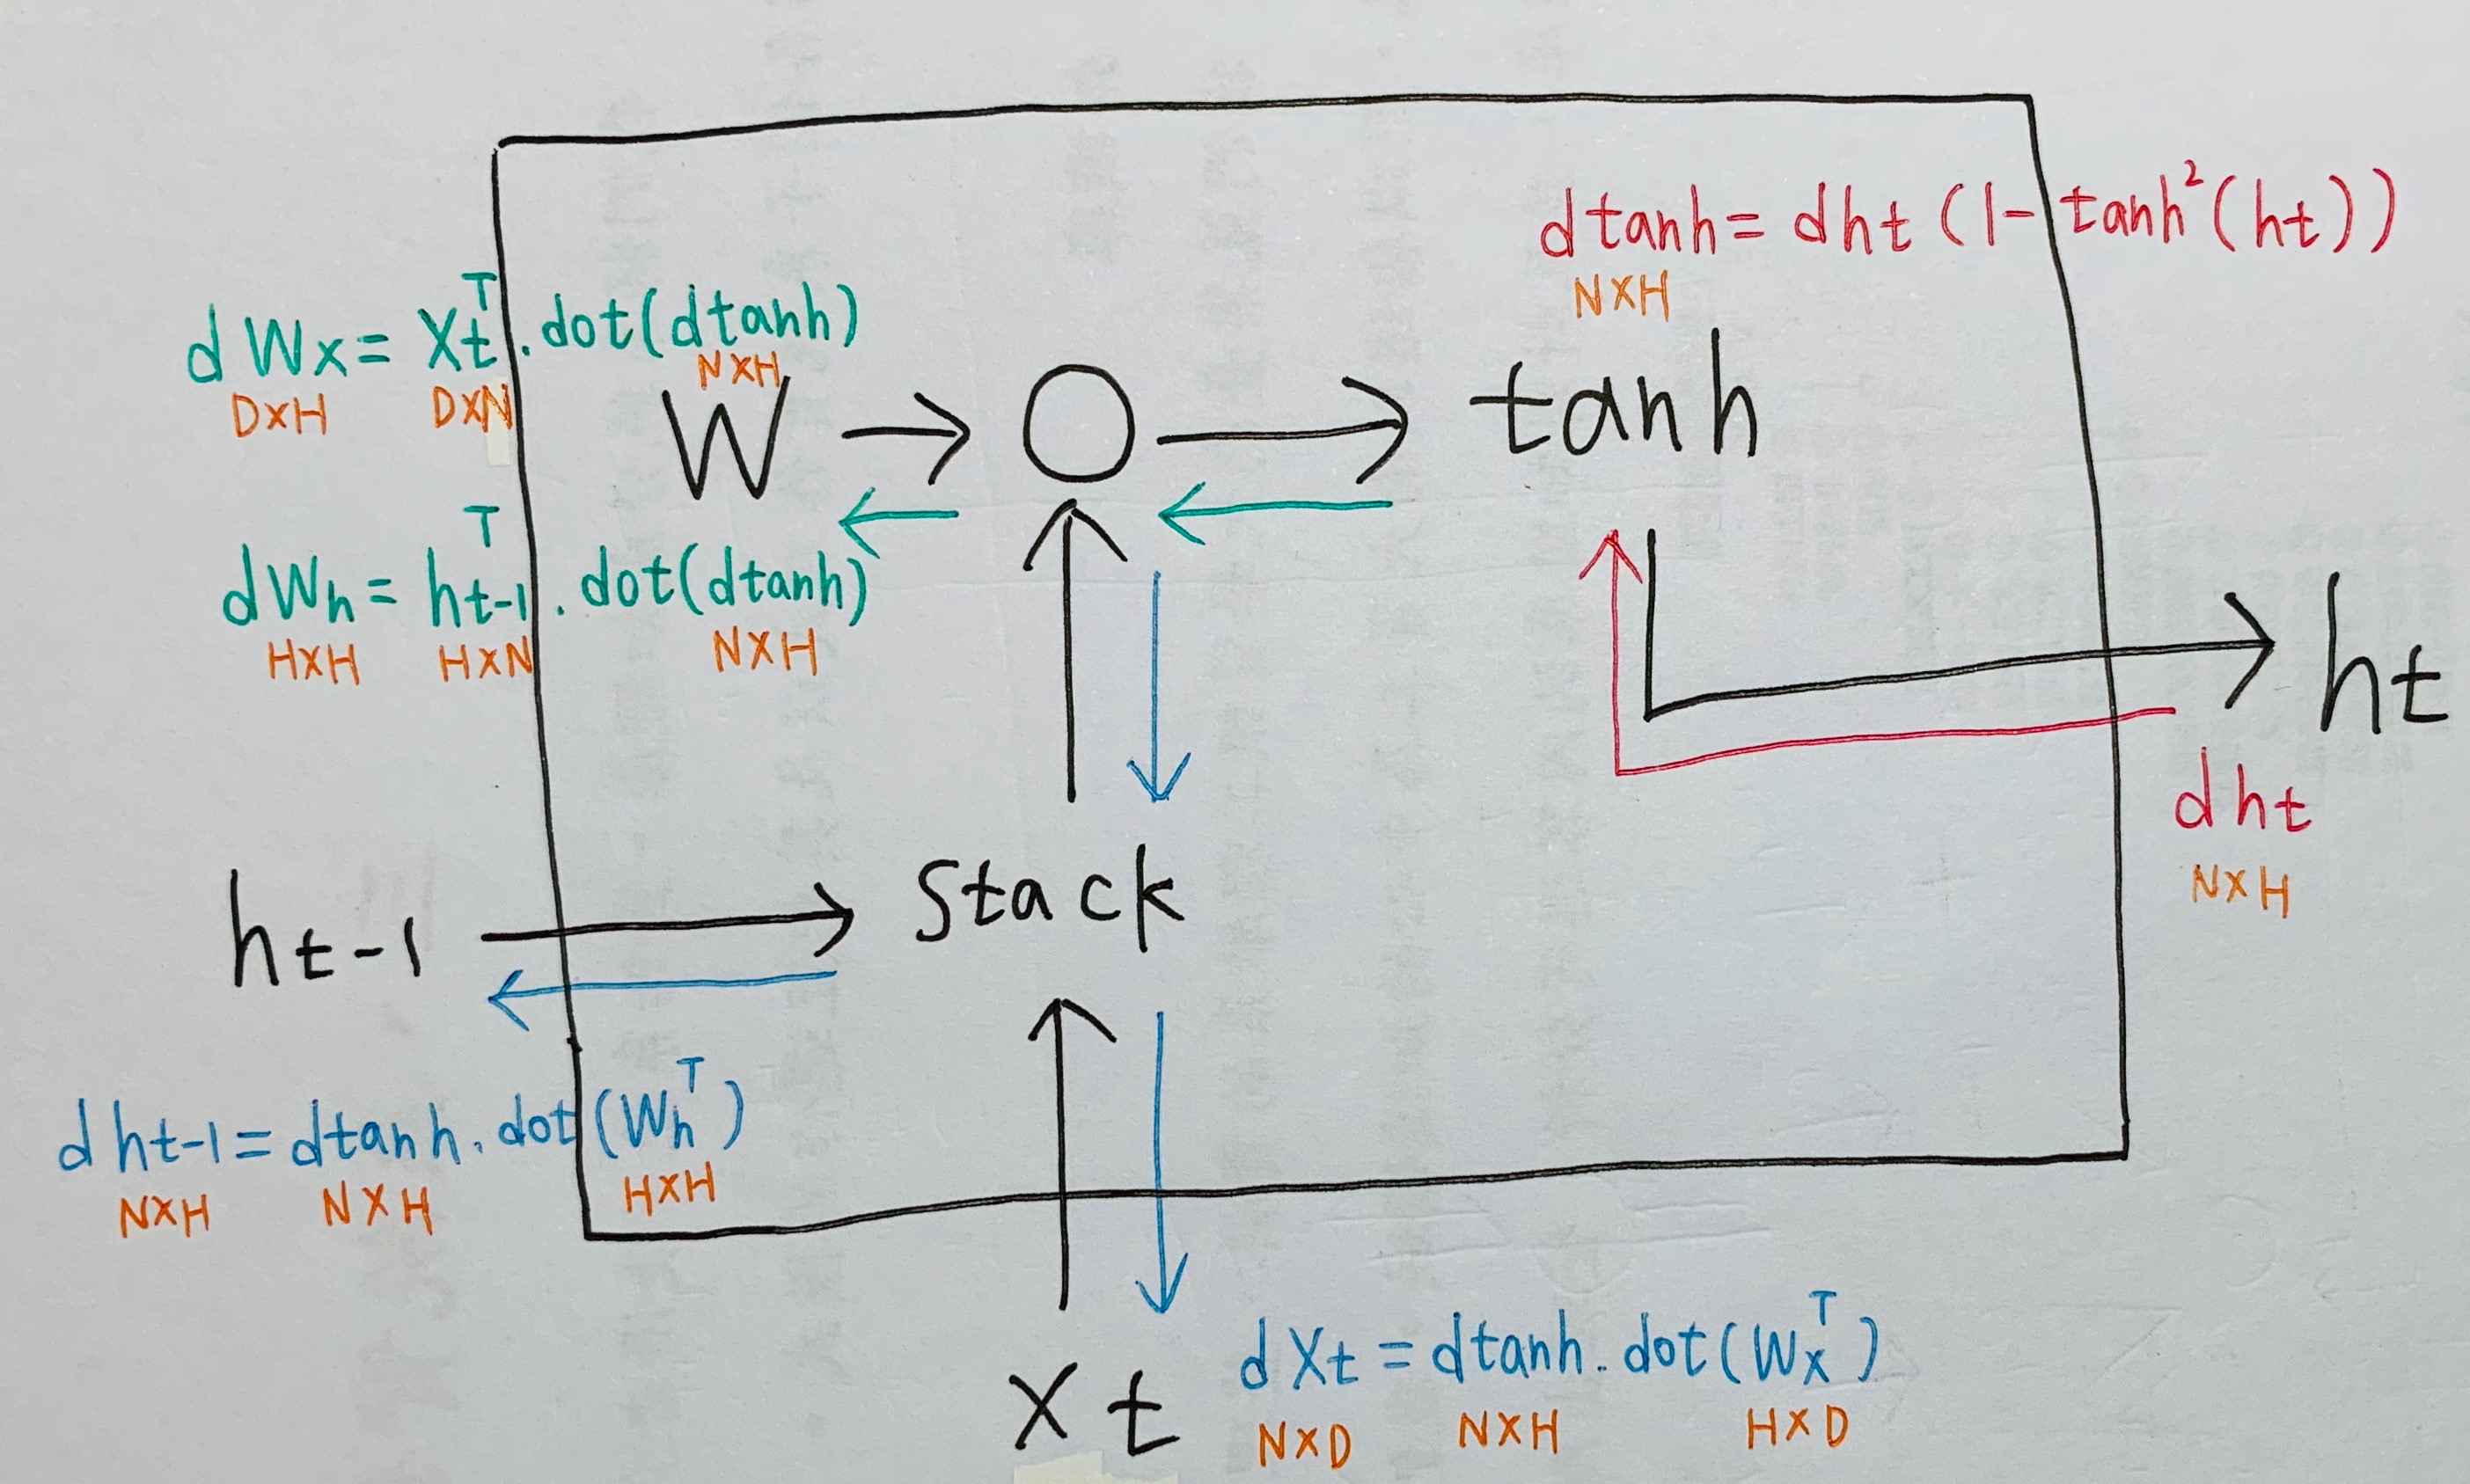 dtanh = dht (1 - tanh²(ht))
NXH
dWx = Xtᵀ.dot(dtanh)
DXH DXN NXH
W
tanh
dWh = ht-1ᵀ.dot(dtanh)
HXH HXN NXH
ht
dht
NXH
ht-1
Stack
dht-1 = dtanh.dot(Whᵀ)
NXH NXH HXH
Xt
dXt = dtanh.dot(Wxᵀ)
NXD NXH HXD